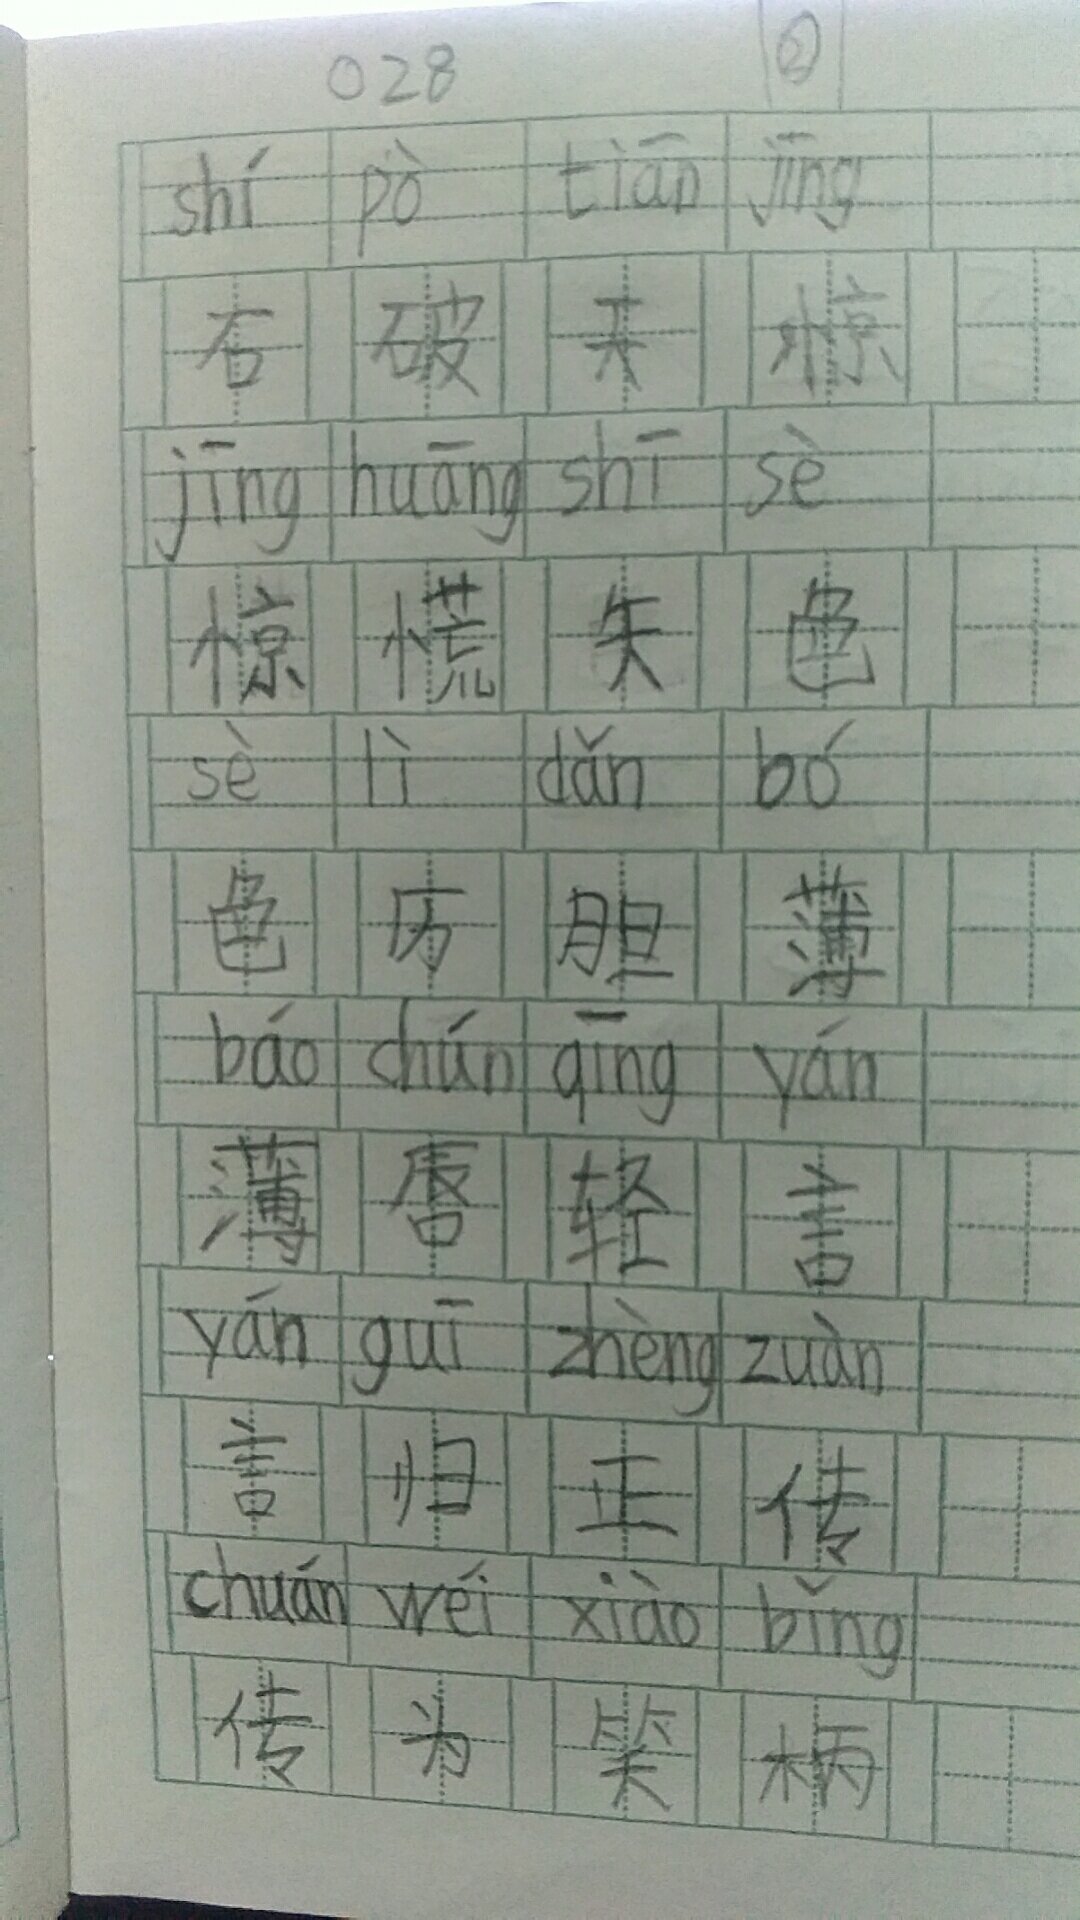 028 ②
shí pò tiān jīng
石破天惊
jīng huāng shī sè
惊慌失色
sè lì dǎn bó
色厉胆薄
báo chún qīng yán
薄唇轻言
yán guī zhèng zuàn
言归正传
chuán wéi xiào bǐng
传为笑柄